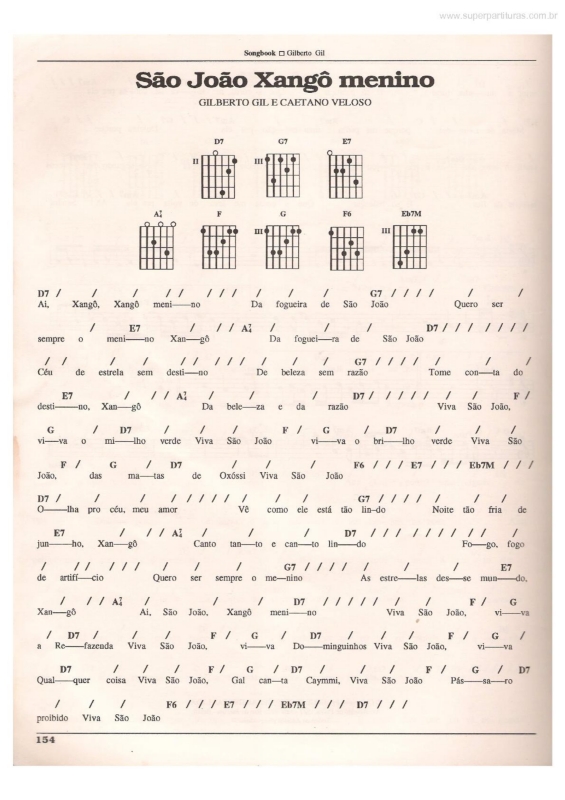 www.superpartituras.com.br
Songbook □ Gilberto Gil
São João Xangô menino
GILBERTO GIL E CAETANO VELOSO
D7 G7 E7
II III
A7/4 F G F6 Eb7M
III III
D7 / / / / / / / / / / / G7 / / / / / /
Ai, Xangô, Xangô meni—no Da fogueira de São João Quero ser
/ E7 / / / A7/4 / / / D7 / / / / / / /
sempre o meni—no Xan—gô Da foguei—ra de São João
/ / / / / / / / / / / / G7 / / / / / /
Céu de estrela sem desti—no De beleza sem razão Tome con—ta do
E7 / / / A7/4 / / / D7 / / / / / / F /
desti—no, Xan—gô Da bele—za e da razão Viva São João,
G / D7 / / / F / G / D7 / / /
vi—va o mi—lho verde Viva São João vi—va o bri—lho verde Viva São
F / G / D7 / / / F6 / / / E7 / / / Eb7M / / /
João, das ma—tas de Oxóssi Viva São João
D7 / / / / / / / / / / / G7 / / / / / /
O—lha pro céu, meu amor Vê como ele está tão lin—do Noite tão fria de
E7 / / / A7/4 / / / D7 / / / / / / / / /
jun—ho, Xan—gô Canto tan—to e can—to lin—do Fo—go, fogo
/ / / / / / / / / / G7 / / / / / / E7
de artifí—cio Quero ser sempre o me—nino As estre—las des—se mun—do,
/ / / A7/4 / / / D7 / / / / / / / F / G
Xan—gô Ai, São João, Xangô meni—no Viva São João, vi—va
/ D7 / / / F / G / D7 / / / F / G /
a Re—fazenda Viva São João, vi—va Do—minguinhos Viva São João, vi—va
D7 / / / F / G / D7 / / / F / G / D7
Qual—quer coisa Viva São João, Gal can—ta Caymmi, Viva São João Pás—sa—ro
/ / / F6 / / / E7 / / / Eb7M / / / D7 / / /
proibido Viva São João
154